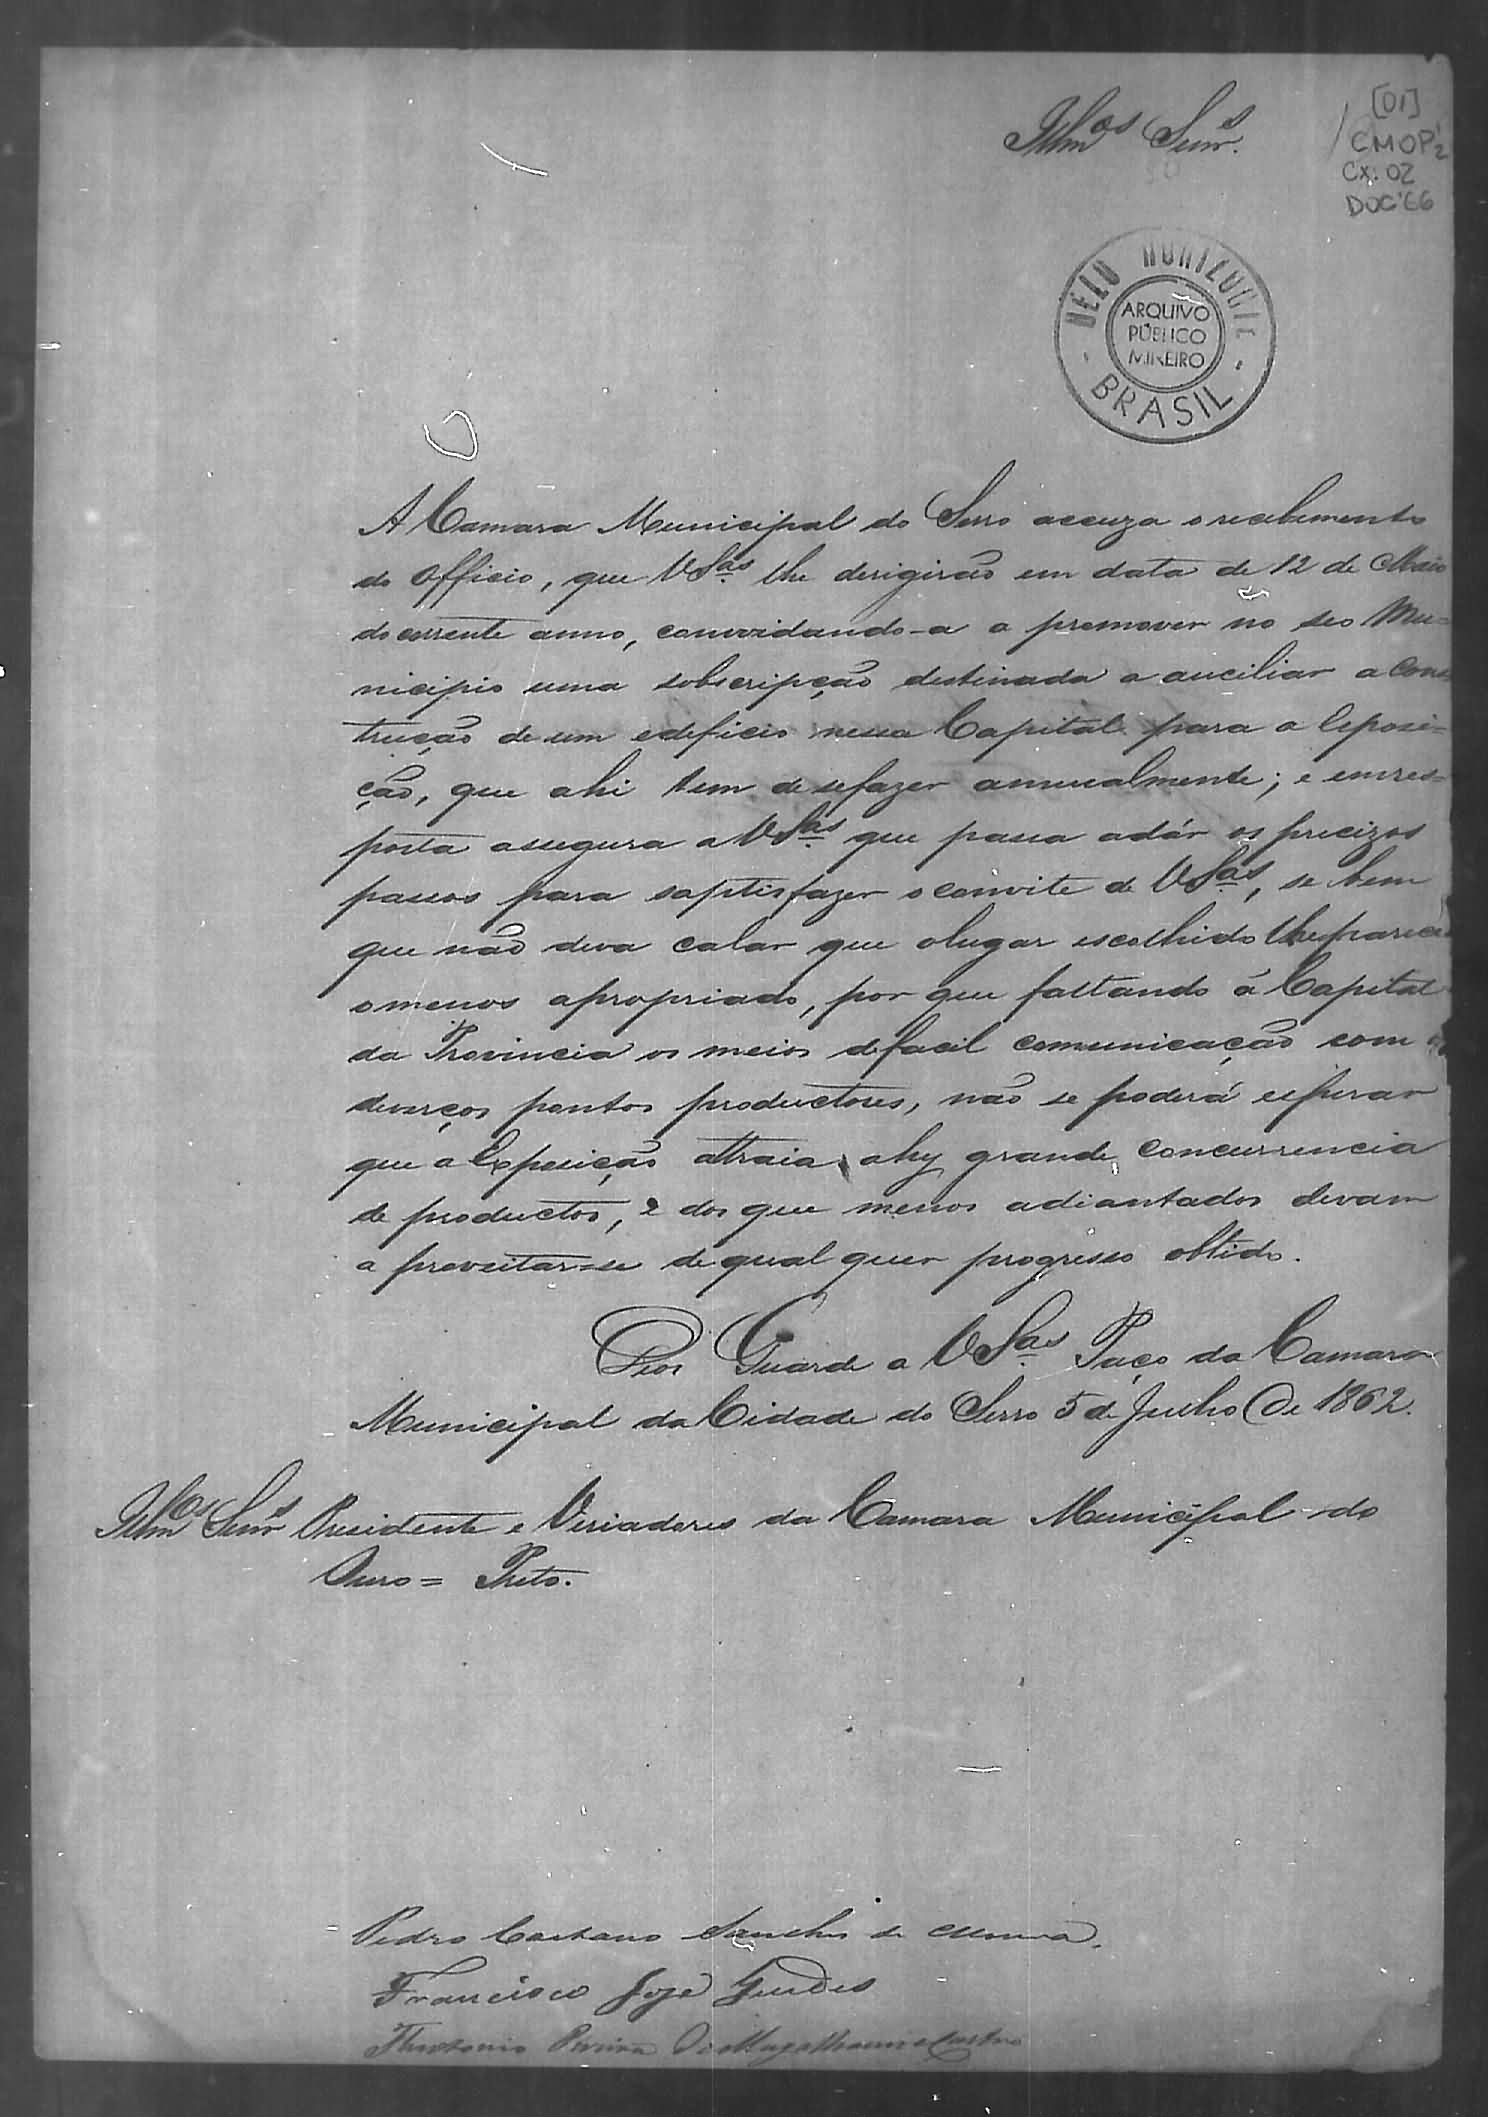 Illmos Senrs.
[01]
CMOP 1/2
Cx: 02
DOC: 66
BELO HORIZONTE
ARQUIVO
PÚBLICO
MINEIRO
BRASIL
A Camara Municipal do Serro accuza o recebimento
do Officio, que VSas. lhe derigirão em data de 12 de Maio
do corrente anno, convidando-a a promover no seo Mu=
nicipio uma sobscripção destinada a auciliar a Cons
trucção de um edeficio nessa Capital para a Exposi=
ção, que ahi tem de se fazer annualmente; e em res=
posta assegura a VSas. que passa a dár os precizos
passos para saptisfazer o convite de VSas., se bem
que não deva calar que o lugar escolhido lhe parece
o menos apropriado, por que faltando á Capital
da Provincia os meios de facil comunicação com os
deverços pontos productores, não se poderá esperar
que a Exposição attraia ahy grande concurrencia
de productos, e dos que menos adiantados devam
a proveitar-se de qual quer progresso obtido.
Deos Guarde a VSas. Paço da Camara
Municipal da Cidade do Serro 5 de Julho de 1862.
Illmos Senrs Presidente e Veriadores da Camara Municipal do
Ouro = Preto.
Pedro Caetano Sanches de Moura.
Francisco José Guedes
Theotonio Pereira de Magalhaens e Castro